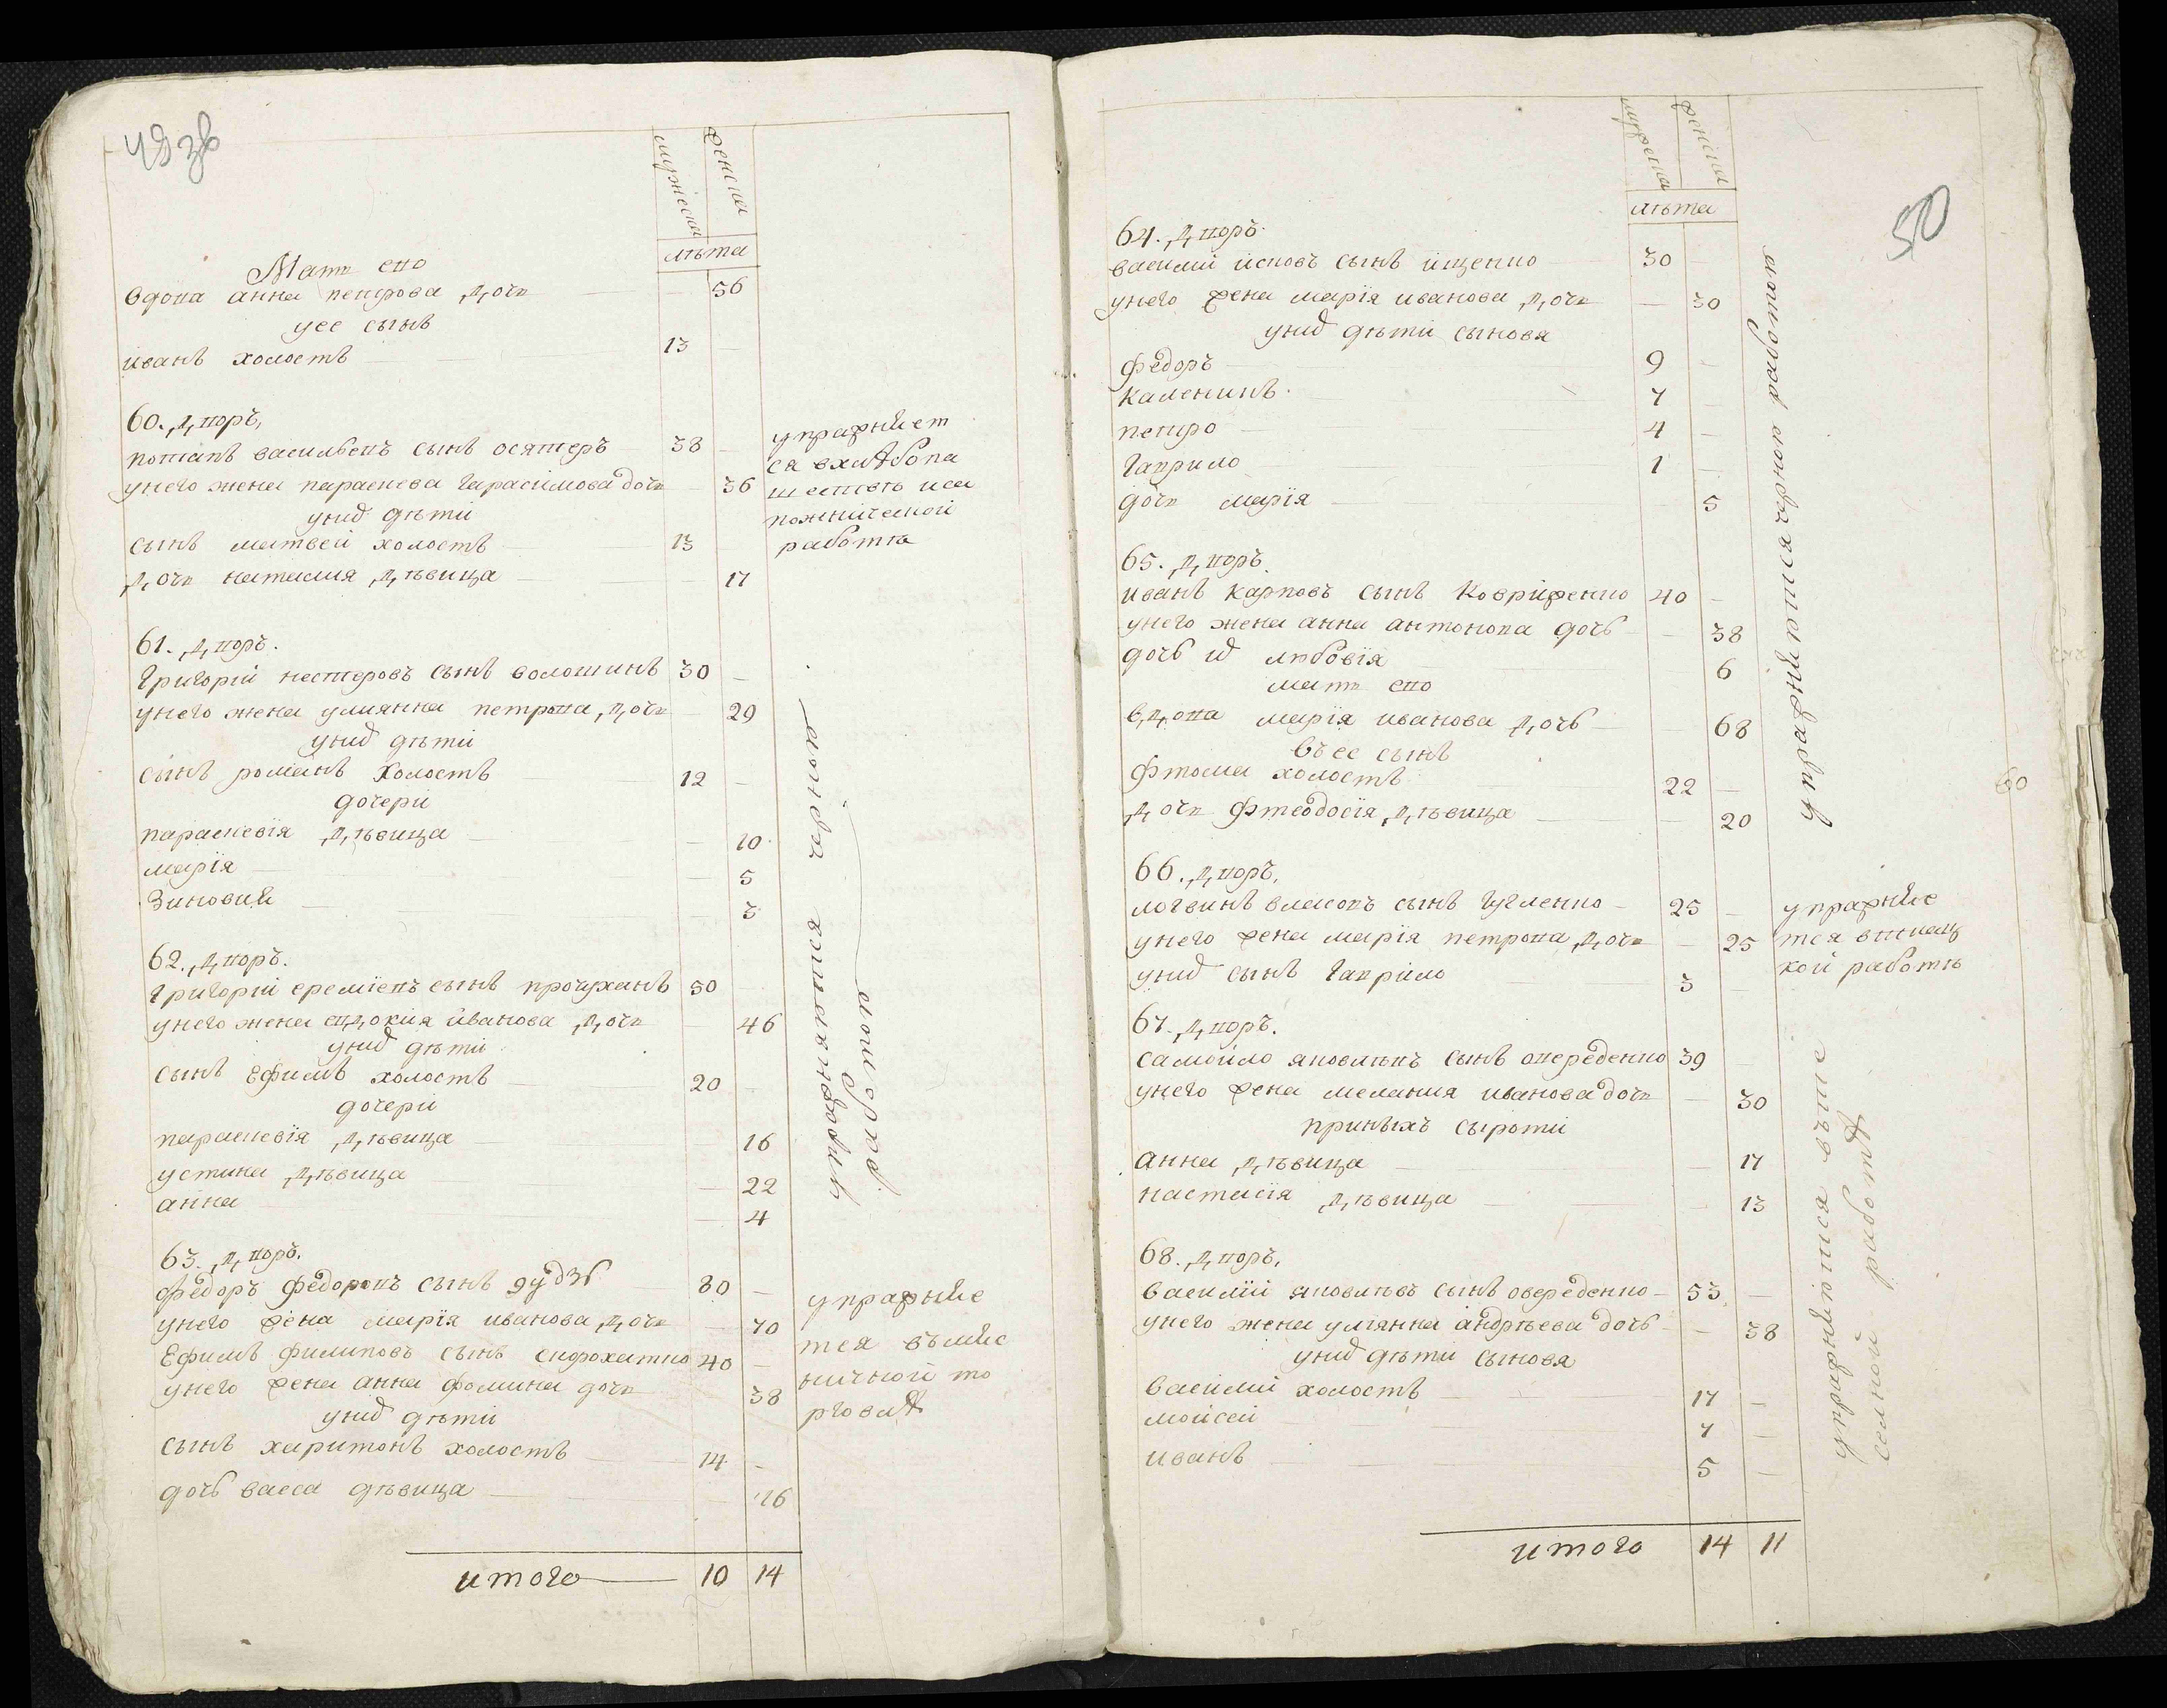 49 зв
мужеска
женска
лѣта
Мать его
вдова анна петрова дочь 56
у ее сынъ
иванъ холостъ 13
60. дворъ,
потапъ васильевъ сынъ осятеръ 38
унего жена параскева Гарасимова дочь 36
унихъ дѣти
сынъ матвей холостъ 13
дочь наталия дѣвица 17
упражняет
ся вхлѣбопа
шествѣ иса
пожнической
работѣ
61. дворъ.
Григорій нестеровъ сынъ волошинъ 30
унего жена улиянна петрова дочь 29
унихъ дѣти
сынъ романъ холостъ 12
дочери
параскевія дѣвица 10
марія 5
Зиновия 3
62. дворъ.
Григорій еремѣевъ сынъ прочуханъ 50
унего жена евдокия иванова дочь 46
унихъ дѣти
сынъ Ефимъ холостъ 20
дочери
параскевія дѣвица 16
устина дѣвица 22
анна 4
упражняются черною
работою
63. дворъ.
федоръ федоровъ сынъ 80
унего жена марія иванова дочь 70
Ефимъ филиповъ сынъ 40
унего жена анна фомина дочь 38
унихъ дѣти
сынъ харитонъ холостъ 14
дочь васса дѣвица 16
упражняе
тся въмяс
ничной то
рговлѣ
итого 10 14
50
мужеска
женска
лѣта
64. дворъ.
василий исковъ сынъ ищенко 30
унего жена марія иванова дочь 30
унихъ дѣти сыновя
федоръ 9
каленикъ 7
петро 4
Гаврило 1
дочь марія 5
65. дворъ.
иванъ карповъ сынъ Ковриженко 40
унего жена анна антонова дочь 38
дочь ихъ любовія 6
мать его
вдова марія иванова дочь 68
въ ее сынъ
фтома холостъ 22
дочь фтеодосія дѣвица 20
упражняются черною работою
66. дворъ,
логвинъ власовъ сынъ Гугленко 25
унего жена марія петрова дочь 25
унихъ сынъ Гаврило 3
упражняе
тся вткац
кой работѣ
67. дворъ.
самойло яковлевъ сынъ овереденко 39
унего жена мелания иванова дочь 30
принихъ сироти
анна дѣвица 17
настасія дѣвица 13
68. дворъ,
василій яковлевъ сынъ овереденко 53
унего жена улиянна андрѣева дочь 38
унихъ дѣти сыновя
василий холостъ 17
мойсей 7
иванъ 5
упражняются
работѣ
60
итого 14 11